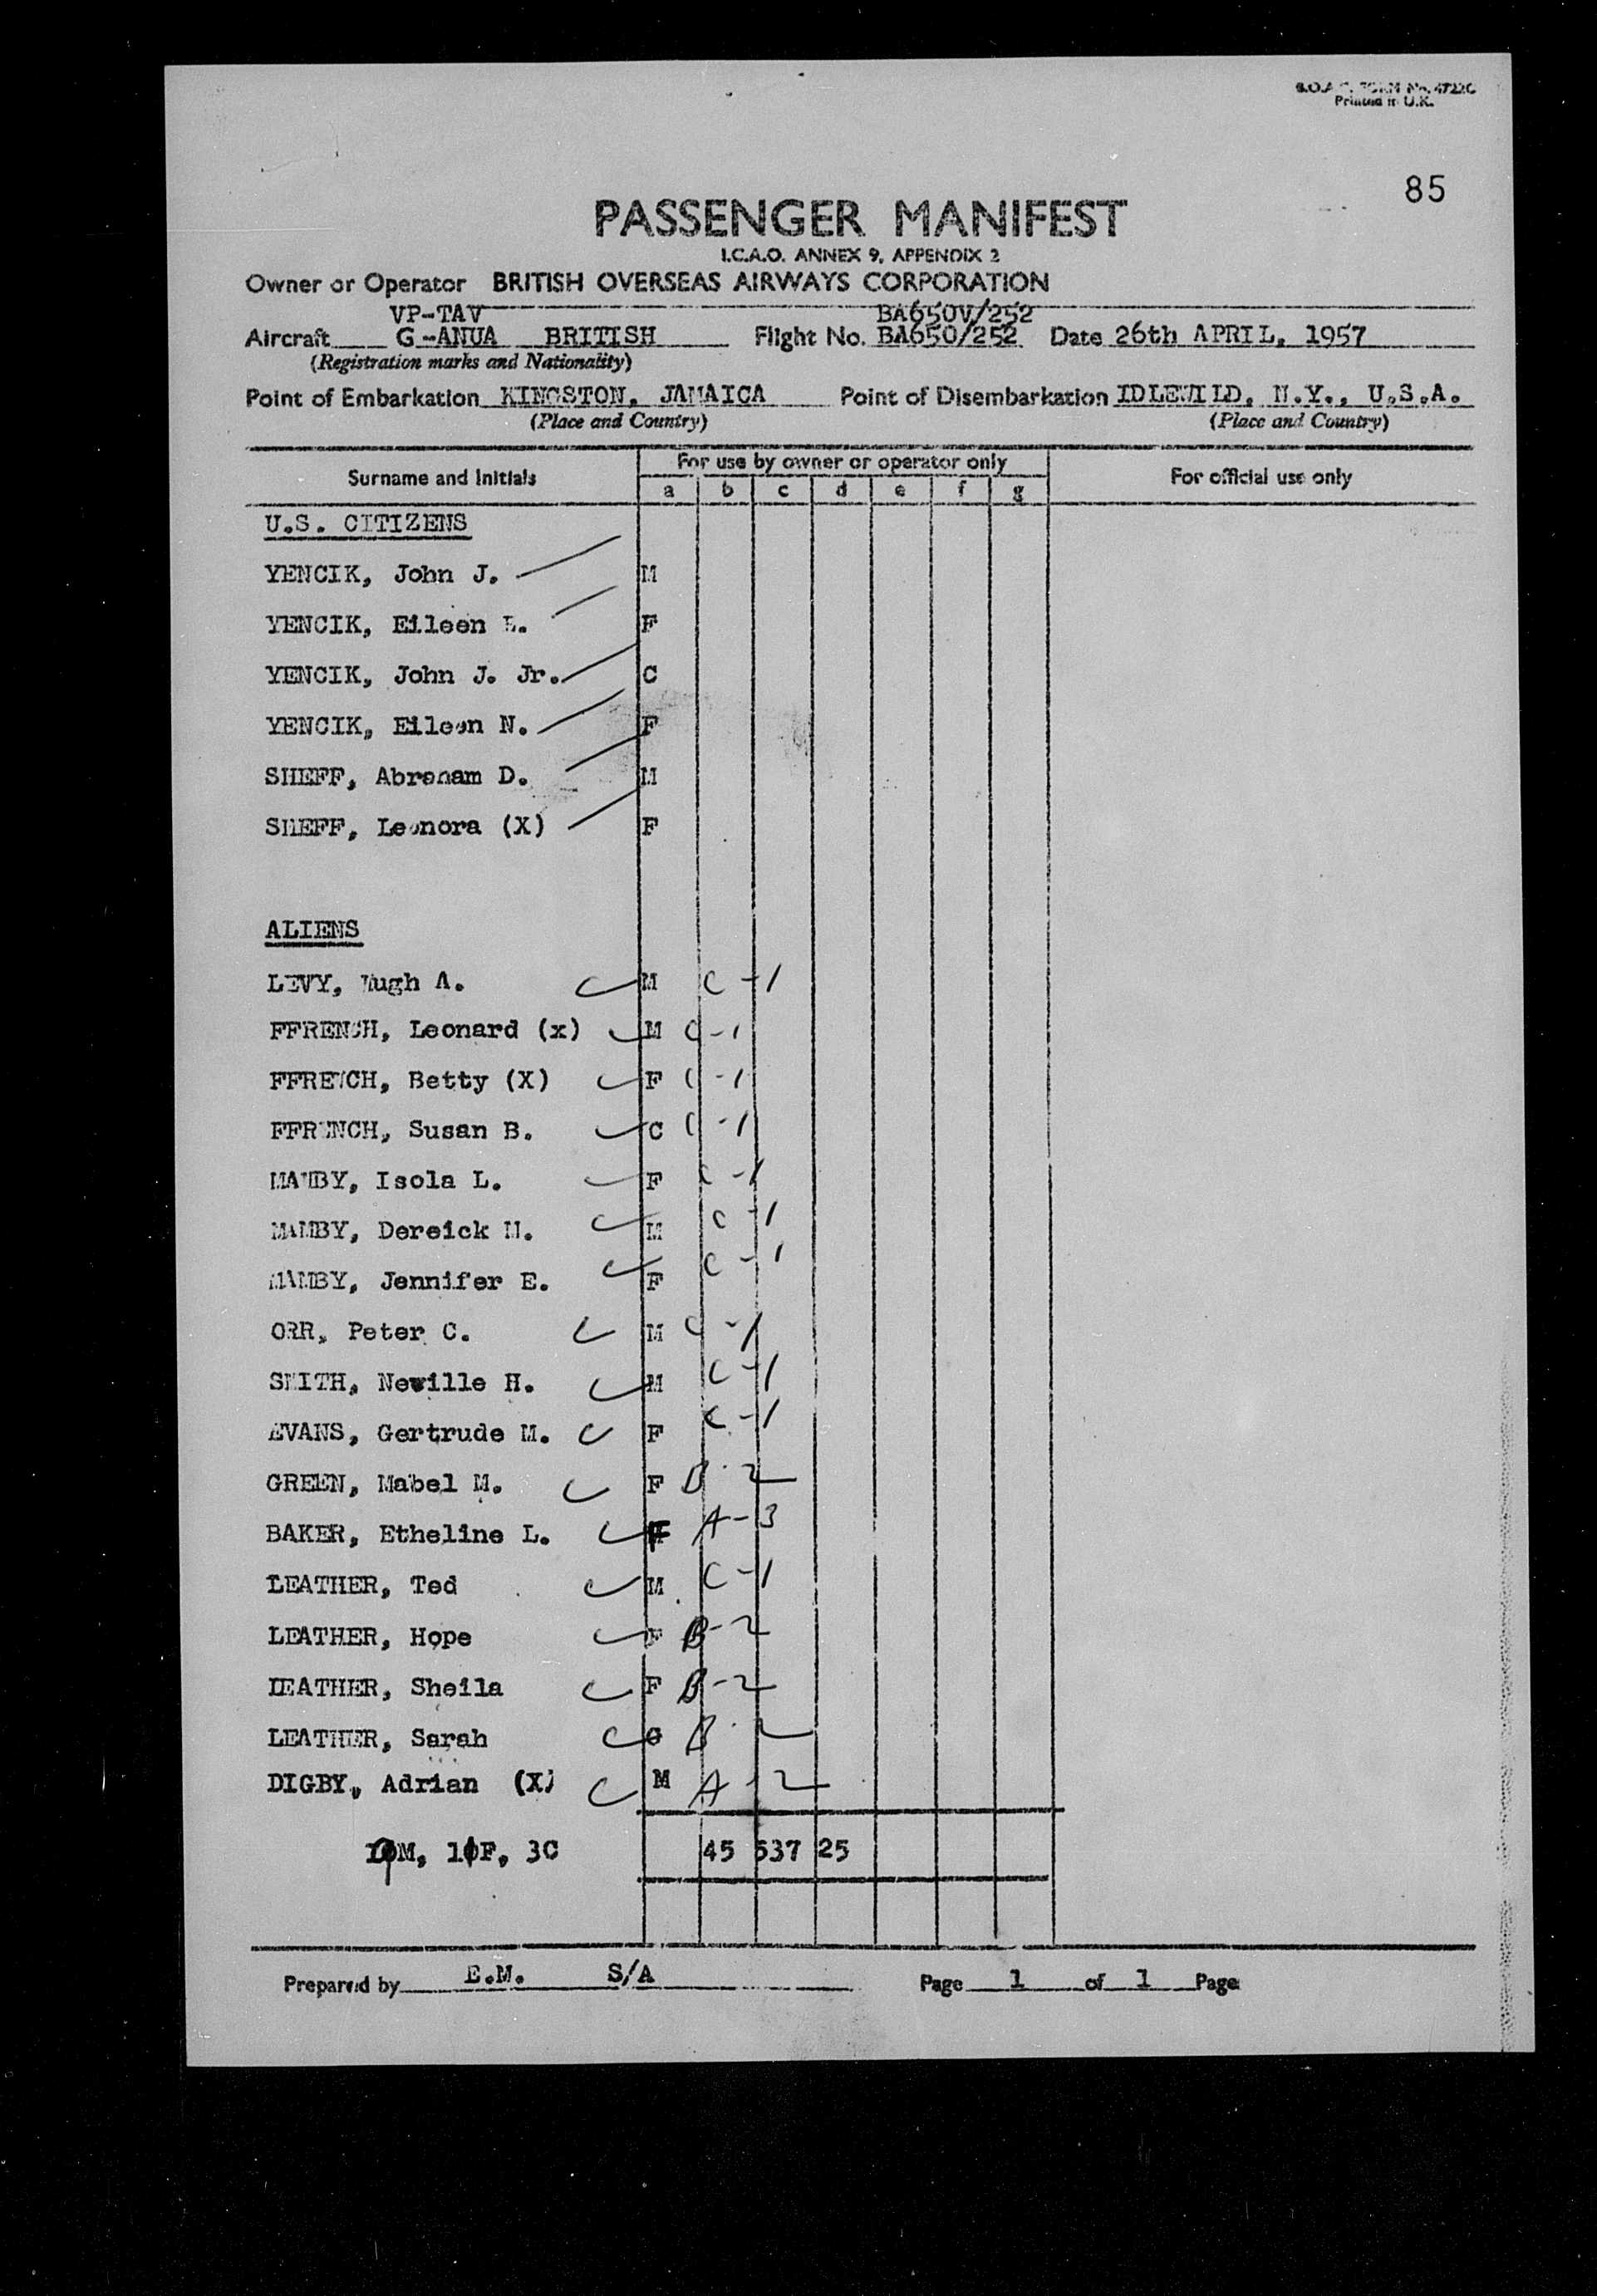 Printed in U.K.
85
PASSENGER MANIFEST
I.C.A.O. ANNEX 9, APPENDIX 2
Owner or Operator BRITISH OVERSEAS AIRWAYS CORPORATION
VP-TAV BA650V/252
Aircraft G-ANUA BRITISH Flight No. BA650/252 Date 26th APRIL, 1957
(Registration marks and Nationality)
Point of Embarkation KINGSTON, JAMAICA Point of Disembarkation IDLEWILD, N.Y., U.S.A.
(Place and Country) (Place and Country)
Surname and Initials For use by owner or operator only For official use only
a b c d e f g
U.S. CITIZENS
YENCIK, John J. M
YENCIK, Eileen F
YENCIK, John J. Jr. C
YENCIK, Eileen N. F
SHEFF, Abraham D. M
SHEFF, Leonora (X) F
ALIENS
LEVY, Hugh A. M C-1
FFRENCH, Leonard (x) M C-1
FFRENCH, Betty (X) F C-1
FFRENCH, Susan B. C C-1
MAMBY, Isola L. F C-1
MAMBY, Dereick M. M C-1
MAMBY, Jennifer E. F C-1
ORR, Peter C. M C-1
SMITH, Neville H. M C-1
EVANS, Gertrude M. F C-1
GREEN, Mabel M. F B-2
BAKER, Etheline L. F A-3
LEATHER, Ted M C-1
LEATHER, Hope F B-2
LEATHER, Sheila F B-2
LEATHER, Sarah C B-2
DIGBY, Adrian (X) M A-2
3C 45 537 25
Prepared by E.M. S/A Page 1 of 1 Page